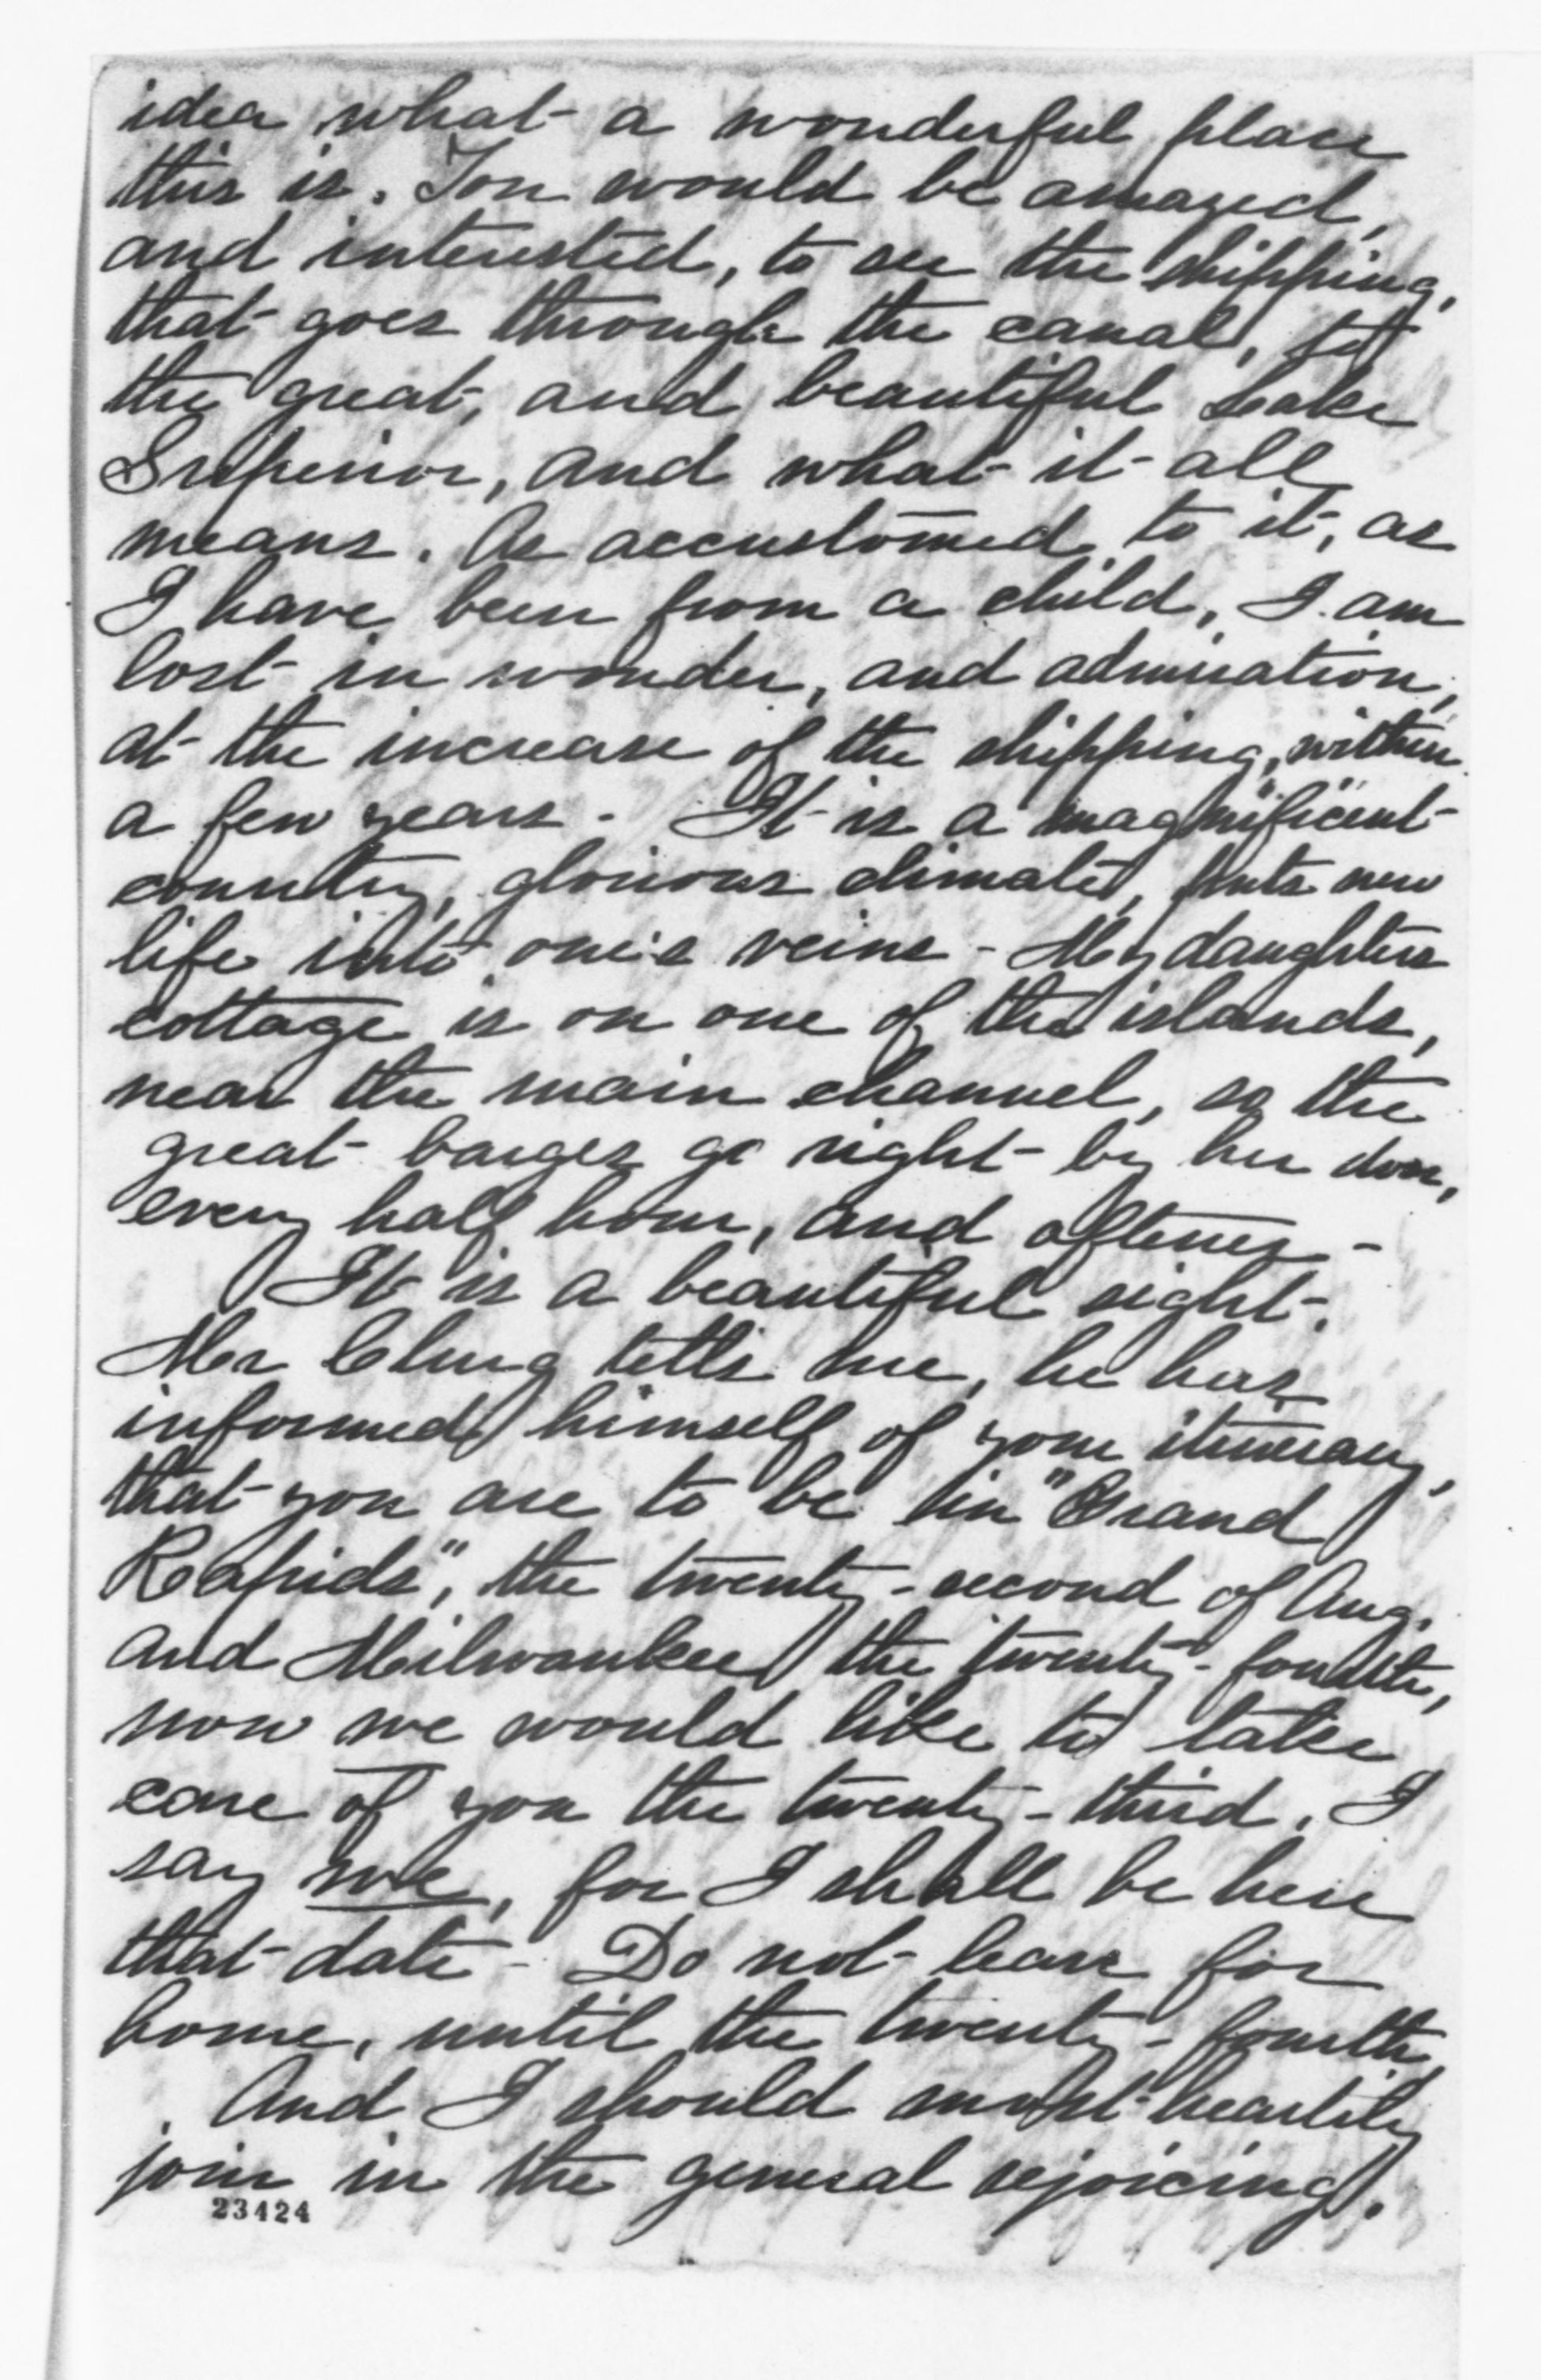 idea what a wonderful place
this is. You would be amazed,
and interested, to see the shipping,
that goes through the canal, to
the great, and beautiful Lake
Superior, and what it all
means. As accustomed to it, as
I have been from a child, I am
lost in wonder, and admiration,
at the increase of the shipping, within
a few years - It is a magnificent
country, glorious climate, puts new
life into one's veins - My daughters
cottage is on one of the islands,
near the main channel, so the
great barges go right by her door,
every half hour, and oftener -
It is a beautiful sight.
Mr Clurg tells me, he has
informed himself of your itinerary,
that you are to be in "Grand
Rapids", the twenty-second of Aug.
and Milwaukee the twenty-fourth,
now we would like to take
care of you the twenty-third. I
say we, for I shall be here
that date - Do not leave for
home, until the twenty-fourth,
And I should most heartily
join in the general rejoicing.
23424